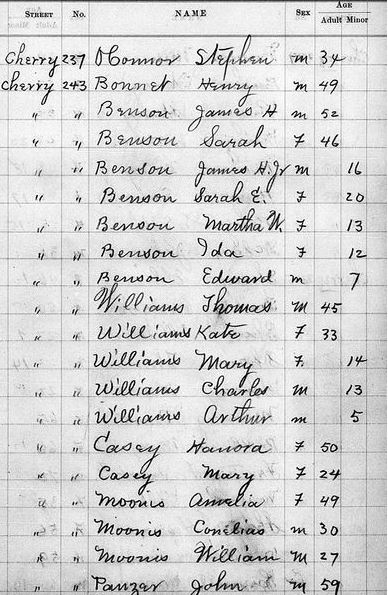 STREET No. NAME SEX AGE Adult Minor
Cherry 237 O'Connor Stephen M 34
Cherry 243 Bonnet Henry M 49
" " Benson James H M 52
" " Benson Sarah F 46
" " Benson James H. Jr M 16
" " Benson Sarah E. F 20
" " Benson Martha W. F 13
" " Benson Ida F 12
" " Benson Edward M 7
" " Williams Thomas M 45
" " Williams Kate F 33
" " Williams Mary F. 14
" " Williams Charles M 13
" " Williams Arthur M 5
" " Casey Hanora F 50
" " Casey Mary F 24
" " Moonis Amelia F 49
" " Moonis Conelias M 30
" " Moonis William M 27
" " Panzer John M 59